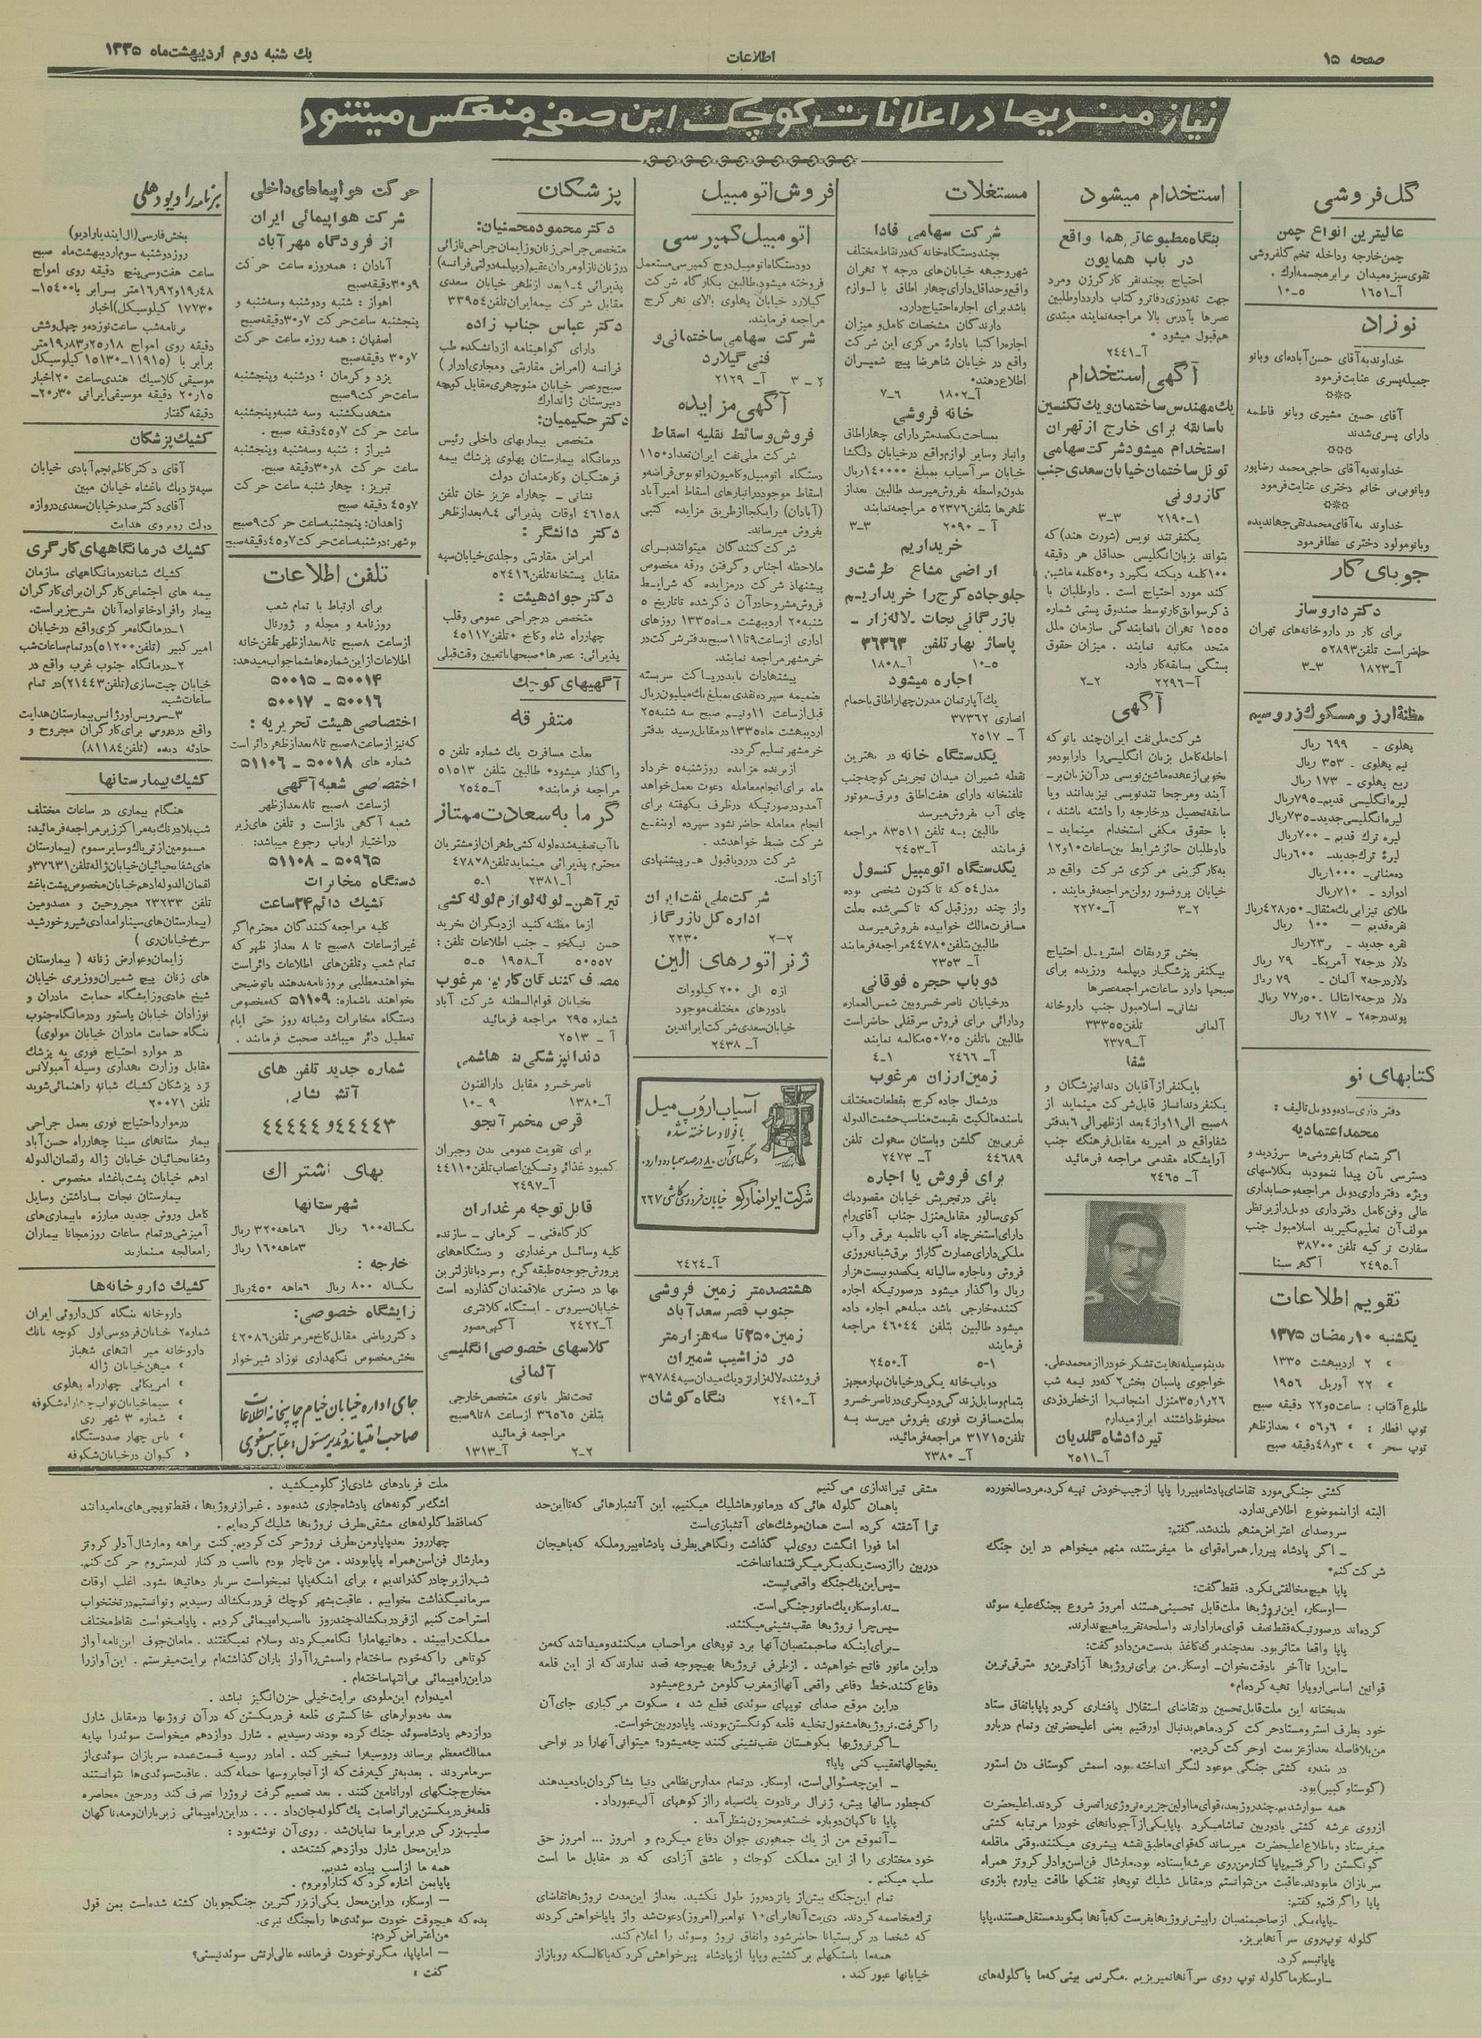 صفحه ۱۵
اطلاعات
یك شنبه دوم اردیبهشت‌ماه ۱۳۳۵
نیازمندیها در اعلانات کوچك این صفحه منعکس میشود
گل فروشی
عالیترین انواع چمن
چمن خارجه و داخله تخم گلفروشی
تقوی سبزه میدان برابر مجسمه ارك.
آ-۱۶۵۱ ۵-۱۰
نوزاد
خداوند به آقای حسن آباده‌ای و بانو
جمیله پسری عنایت فرمود
آقای حسین مشیری و بانو فاطمه
دارای پسری شدند
خداوند به آقای حاجی محمد رضاپور
و بانو بی بی خانم دختری عنایت فرمود
خداوند به آقای محمد تقی جهاندیده
و بانو مولود دختری عطا فرمود
جویای کار
دکتر داروساز
برای کار در داروخانه‌های تهران
حاضر است تلفن ۵۲۸۹۳
آ-۱۸۲۳ ۳-۳
مظنهٔ ارز و مسکوك زر و سیم
پهلوی - ۶۹۹ ریال
نیم پهلوی - ۳۵۳ ریال
ربع پهلوی - ۱۷۳ ریال
لیره انگلیسی قدیم-۷۹۵ریال
لیره انگلیسی جدید-۷۳۵ریال
لیره ترك قدیم - ۷۰۰ریال
لیرهٔ ترك جدید- ۶۰۰ریال
ده مثانی-۱۰۰۰ریال
ادوارد - ۷۱۰ریال
نقره قدیم - ۱۰۰ ریال
نقره جدید - ۲۳ریال
دلار درجه ۲ آمریکا- ۷۹ ریال
دلار درجه ۲ آلمان - ۷۹ ریال
دلار درجه ۲ ایتالیا - ۷۷٫۵۰ ریال
پوند درجه ۲ - ۲۱۷ ریال
کتابهای نو
دفترداری ساده و دوبل تالیف :
محمد اعتمادیه
اگر بتمام کتابفروشی‌ها سر زدید و
دسترسی بآن پیدا ننمودید بکلاسهای
ویژه دفترداری دوبل مراجعه و حسابداری
عالی و فن کامل دفترداری دوبل را زیر نظر
مولف آن تعلیم بگیرید اسلامبول جنب
سفارت ترکیه تلفن ۳۸۷۰۰
آ-۲۴۹۵ آگهی سینا
تقویم اطلاعات
یکشنبه ۱۰ رمضان ۱۳۷۵
» ۲ اردیبهشت ۱۳۳۵
» ۲۲ آوریل ۱۹۵۶
طلوع آفتاب : ساعت ۵ و ۲۲ دقیقه صبح
توپ افطار : » ۶ و ۵۶ » بعد از ظهر
توپ سحر : » ۳ و ۴۸ دقیقه صبح
استخدام میشود
بنگاه مطبوعاتی هما واقع
در باب همایون
احتیاج بچند نفر کارگر زن و مرد
جهت ته دوزی دفاتر و کتاب دارد داوطلبین
عصرها بآدرس بالا مراجعه نمایند مبتدی
هم قبول میشود *
آ-۲۴۴۱
آگهی استخدام
یك مهندس ساختمان و یك تکنسین
با سابقه برای خارج از تهران
استخدام میشود شرکت سهامی
تونل ساختمان خیابان سعدی جنب
کازرونی
۱-۲۱۹۰ ۳-۳
یکنفر تند نویس (شورت هند) که
بتواند بزبان انگلیسی حداقل هر دقیقه
۱۰۰ کلمه دیکته بگیرد و ۵۰ کلمه ماشین
کند مورد احتیاج است . داوطلبان با
ذکر سوابق کار توسط صندوق پستی شماره
۱۵۵۵ تهران با نمایندگی سازمان ملل
متحد مکاتبه نمایند . میزان حقوق
بستگی بسابقه کار دارد.
آ-۲۲۹۶ ۲-۲
آگهی
شرکت ملی نفت ایران چند بانو که
احاطه کامل بزبان انگلیسی را دارا بوده و
بخوبی از عهده ماشین نویسی در آن زبان بر-
آیند و مرجحا تند نویسی نیز بدانند و یا
سابقه تحصیل در خارجه را داشته باشند ،
با حقوق مکفی استخدام مینماید -
داوطلبان حائز شرایط بین ساعات ۱۰ و ۱۲
به کارگزینی مرکزی شرکت واقع در
خیابان پروفسور رولن مراجعه فرمایند .
۳-۲ آ-۲۲۷۰
بخش تزریقات استریل احتیاج
بیکنفر پزشگیار دیپلمه ورزیده برای
صبحها دارد ساعات مراجعه عصرها
نشانی- اسلامبول جنب داروخانه
آلمانی تلفن ۳۳۳۵۵
آ-۲۳۷۹
شفا
با یکنفر از آقایان دندانپزشکان و
یکنفر دندانساز قابل شرکت مینماید از
۸ صبح الی ۱۱ و از ۴ بعد از ظهر الی ۶ بدفتر
شفا واقع در امیریه مقابل فرهنگ جنب
آرایشگاه مقدمی مراجعه فرمائید
آ-۲۴۶۵
بدینوسیله نهایت تشکر خود را از محمدعلی
خواجوی پاسبان بخش ۲ که در نیمه شب
۲۶ر۱ر۳۵ منزل اینجانب را از خطر دزدی
محفوظ داشتند ابراز میدارم
تیرداد شاه گلدیان
آ-۲۵۱۱
مستغلات
شرکت سهامی فادا
بچند دستگاه خانه که در نقاط مختلف
شهر و جبهه خیابان‌های درجه ۲ تهران
واقع و حداقل دارای چهار اطاق با لوازم
باشد برای اجاره احتیاج دارد.
دارندگان مشخصات کامل و میزان
اجاره را کتبا بادارهٔ مرکزی این شرکت
واقع در خیابان شاهرضا پیچ شمیران
اطلاع دهند*
آ-۱۸۰۲ ۶-۷
خانه فروشی
بمساحت یکصد متر دارای چهار اطاق
و انبار و سایر لوازم واقع در خیابان دلگشا
خیابان سرآسیاب بمبلغ ۱۴۰۰۰۰ریال
بدون واسطه بفروش میرسد طالبین بعد از
ظهرها بتلفن ۵۲۳۷۶ مراجعه نمایند
آ - ۲۰۹۰ ۳-۳
خریداریم
اراضی مشاع طرشت و
جلو جاده کرج را خریداریم
بازرگانی نجات - لاله زار -
پاساژ بهار تلفن ۳۶۳۶۳
۵-۱۰ آ-۱۸۰۸
اجاره میشود
یك آپارتمان مدرن چهار اطاق با حمام
انصاری ۳۷۳۶۲
آ-۲۵۱۷
یکدستگاه خانه در بهترین
نقطه شمیران میدان تجریش کوچه جنب
تلفنخانه دارای هفت اطاق و برق-موتور
چای آب بفروش میرسد
طالبین به تلفن ۸۳۵۱۱ مراجعه
فرمایند آ-۲۴۵۳
یکدستگاه اتومبیل کنسول
مدل ۵۴ که تا کنون شخصی بوده
و از چند روز قبل که تاکسی شده بعلت
مسافرت مالك خوابیده بفروش میرسد
طالبین بتلفن ۴۴۷۸۰ مراجعه فرمایند
آ-۲۳۵۳
دوباب حجره فوقانی
در خیابان ناصرخسرو بین شمس العماره
و دارائی برای فروش سرقفلی حاضر است
طالبین با تلفن ۵۰۷۰۵ مکالمه نمایند
آ- ۲۴۶۶ ۱-۴
زمین ارزان مرغوب
در شمال جاده کرج بقطعات مختلف
با سند مالکیت بقیمت مناسب حشمت الدوله
غربی بین گلشن و باستان سهولت تلفن
۴۴۶۸۹ آ-۲۴۷۳
برای فروش یا اجاره
باغی در تجریش خیابان مقصود بك
کوی سالور مقابل منزل جناب آقای رام
دارای استخر چاه آب با تلمبه برقی و آب
ملکی دارای عمارت گاراژ برق شبانه روزی
فروش و باجاره سالیانه یکصد و بیست هزار
ریال واگذار میشود در صورتیکه اجاره
کننده خارجی باشد مبله هم اجاره داده
میشود طالبین بتلفن ۴۶۰۴۴ مراجعه
فرمایند
۵-۱ آ-۲۴۵۰
دو باب خانه یکی در خیابان بهار مجهز
بتمام وسایل زندگی و دیگری در ناصرخسرو
بعلت مسافرت فوری بفروش میرسد به
تلفن ۳۱۷۱۵ مراجعه فرمائید.
آ- ۲۳۸۰
فروش اتومبیل
اتومبیل کمپرسی
دو دستگاه اتومبیل دوج کمپرسی مستعمل
فروخته میشود, طالبین بکارگاه شرکت
گیلارد خیابان پهلوی بالای نهر کرج
مراجعه فرمایند.
شرکت سهامی ساختمانی و
فنی گیلارد
۲ - ۳ آ- ۲۱۲۹
آگهی مزایده
فروش وسائط نقلیه اسقاط
شرکت ملی نفت ایران تعداد ۱۱۵۰
دستگاه اتومبیل و کامیون و اتوبوس قراضه و
اسقاط موجود در انبارهای اسقاط امیرآباد
(آبادان) را یکجا از طریق مزایده کتبی
بفروش میرساند.
شرکت کنندگان میتوانند برای
ملاحظه اجناس و گرفتن ورقه مخصوص
پیشنهاد شرکت در مزایده که شرایط
فروش مشروحا در آن ذکر شده تا تاریخ ۵
شنبه ۲۰ اردیبهشت ماه ۱۳۳۵ روزهای
اداری از ساعت ۹ تا ۱۱ صبح بدفتر شرکت در
خرمشهر مراجعه نمایند.
پیشنهادات باید در پاکت سربسته
بضمیمه سپرده نقدی بمبلغ یك میلیون ریال
قبل از ساعت ۱۱ و نیم صبح سه شنبه ۲۵
اردیبهشت ماه ۱۳۳۵ در مقابل رسید بدفتر
خرمشهر تسلیم گردد.
از برنده مزایده روز شنبه ۵ خرداد
ماه برای انجام معامله دعوت بعمل خواهد
آمد و در صورتیکه در ظرف یکهفته برای
انجام معامله حاضر نشود سپرده او بنفع
شرکت ضبط خواهد شد.
شرکت در رد یا قبول هر پیشنهادی
آزاد است.
شرکت ملی نفت ایران
اداره کل بازرگانی
۲-۲ ۲۲۳۰
ژنراتورهای الین
از ۵ الی ۲۰۰ کیلووات
با دورهای مختلف موجود
خیابان سعدی شرکت ایراندین
آ- ۲۴۳۸
آسیاب اروپ میل
با فولاد ساخته شده
شرکت ایرانمارگو خیابان فردوسی کاشی ۲۲۷
آ-۲۴۲۴
هشتصد متر زمین فروشی
جنوب قصر سعدآباد
زمین ۲۵۰ تا سه هزار متر
در دزاشیب شمیران
فروشنده لاله زار نزدیك میدان سپه ۳۹۷۸۴
آ-۲۴۱۰ بنگاه کوشان
پزشکان
دکتر محمود محسنیان:
متخصص جراحی زنان و زایمان جراحی نازائی
در زنان نازا و مردان عقیم(دیپلمه دولتی فرانسه)
پذیرائی ۴-۸ بعد از ظهر خیابان سعدی
مقابل شرکت بیمه ایران تلفن ۳۳۹۵۴
دکتر عباس جناب زاده
دارای گواهینامه از دانشکده طب
فرانسه (امراض مقاربتی و مجاری ادرار)
صبح و عصر خیابان منوچهری مقابل کوچه
دبیرستان ژاندارك
دکتر حکیمیان:
متخصص بیماریهای داخلی رئیس
درمانگاه بیمارستان پهلوی پزشك بیمه
فرهنگیان و کارمندان دولت
نشانی - چهارراه عزیز خان تلفن
۴۶۱۵۸ اوقات پذیرائی ۴-۸ بعد از ظهر
دکتر دانشگر :
امراض مقاربتی و جلدی خیابان سپه
مقابل پستخانه تلفن ۵۲۴۱۶
دکتر جواد هیئت :
متخصص در جراحی عمومی و قلب
چهارراه شاه و کاخ * تلفن ۴۵۱۱۷
پذیرائی: عصرها * صبحها با تعیین وقت قبلی
آگهیهای کوچك
متفرقه
بعلت مسافرت یك شماره تلفن ۵
واگذار میشود* طالبین بتلفن ۵۱۵۱۳
مراجعه فرمایند* آ-۲۵۴۵
گرمابه سعادت ممتاز
با آب تصفیه شده لوله کشی طهران از مشتریان
محترم پذیرائی مینماید تلفن ۴۷۸۲۸
آ-۲۳۸۱ ۱-۵
تیرآهن-لوله لوازم لوله کشی
از ما مظنه کنید از دیگران بخرید
حسن نیکخو - جنب اطلاعات تلفن :
۵۰۵۵۷ آ-۱۹۵۸ ۵-۵
مصرف کنندگان کارتن مرغوب
خیابان قوام السلطنه شرکت آباد
شماره ۲۹۵ مراجعه فرمائید
آ - ۲۵۱۳
دندانپزشکی بنی هاشمی
ناصرخسرو مقابل دارالفنون
آ-۱۳۸۰ ۹ -۱۰
قرص مخمر آبجو
برای تقویت عمومی بدن و جبران
کمبود غذائی و تسکین اعصاب تلفن ۴۴۱۱۰
آ-۲۴۹۷
قابل توجه مرغداران
کارگاه فنی - کرمانی - سازنده
کلیه وسائل مرغداری و دستگاههای
پرورش جوجه ۵ طبقه گرم و سرد با نازلترین
بها در دسترس علاقمندان گذارده است
خیابان سیروس - ایستگاه کلانتری
آ-۲۴۲۲ آگهی مصور
کلاسهای خصوصی انگلیسی
آلمانی
تحت نظر بانوی متخصص خارجی
بتلفن ۳۶۵۶۵ از ساعت ۸ تا ۹ صبح
مراجعه فرمائید
۲-۲ آ-۱۳۱۳
حرکت هواپیماهای داخلی
شرکت هواپیمائی ایران
از فرودگاه مهرآباد
آبادان : همه روزه ساعت حرکت
۹ و ۳۰ دقیقه صبح
اهواز : شنبه و دوشنبه و سه شنبه و
پنجشنبه ساعت حرکت ۷ و ۳۰ دقیقه صبح
اصفهان : همه روزه ساعت حرکت
۷ و ۳۰ دقیقه صبح
یزد و کرمان : دوشنبه و پنجشنبه
ساعت حرکت ۹ صبح
مشهد یکشنبه و سه شنبه و پنجشنبه
ساعت حرکت ۷ و ۴۵ دقیقه صبح .
شیراز : شنبه و سه شنبه و پنجشنبه
ساعت حرکت ۸ و ۳۰ دقیقه صبح.
تبریز : چهارشنبه ساعت حرکت
۷ و ۴۵ دقیقه صبح
زاهدان: پنجشنبه ساعت حرکت ۹ صبح
بوشهر: دوشنبه ساعت حرکت ۷ و ۴۵ دقیقه صبح
تلفن اطلاعات
برای ارتباط با تمام شعب
روزنامه و مجله و ژورنال
از ساعت ۸ صبح تا ۸ بعد از ظهر تلفن خانه
اطلاعات از این شماره ها بشما جواب میدهد:
۵۰۰۱۴ - ۵۰۰۱۵
۵۰۰۱۶ - ۵۰۰۱۷
اختصاصی هیئت تحریریه :
که نیز از ساعت ۸ صبح تا ۸ بعد از ظهر دائر است
شماره های ۵۰۰۱۸ - ۵۱۱۰۶
اختصاصی شعبه آگهی
از ساعت ۸ صبح تا ۸ بعد از ظهر
شعبه آگهی باز است و تلفن های زیر
در اختیار ارباب رجوع میباشد:
۵۰۹۶۵ - ۵۱۱۰۸
دستگاه مخابرات
کشیك دائم ۲۴ ساعت
کلیه مراجعه کنندگان محترم اگر
غیر از ساعات ۸ صبح تا ۸ بعد از ظهر که
تمام شعب و تلفن‌های اطلاعات دائر است
خواهند مطلبی بروزنامه بدهند یا توضیحی
بخواهند با شماره: ۵۱۱۰۹ که مخصوص
دستگاه مخابرات و شبانه روز حتی ایام
تعطیل دائر میباشد صحبت فرمایند .
شماره جدید تلفن های
آتش نشانی
۴۴۴۴۳ و ۴۴۴۴۴
بهای اشتراك
شهرستانها
یکساله ۶۰۰ ریال ۶ ماهه ۳۲۰ ریال
۳ ماهه ۱۶۰ ریال
خارجه :
یکساله ۸۰۰ ریال ۶ ماهه ۴۵۰ ریال
زایشگاه خصوصی:
دکتر ریاضی مقابل کاخ مرمر تلفن ۴۲۰۸۶
بخش مخصوص نگهداری نوزاد شیرخوار
جای اداره خیابان خیام چاپخانه اطلاعات
صاحب امتیاز و مدیر مسئول : عباس مسعودی
برنامه رادیو دهلی
بخش فارسی (آل ایندیا رادیو)
روز دوشنبه سوم اردیبهشت ماه صبح
ساعت هفت و سی پنج دقیقه روی امواج
۱۷۷۳۰ کیلوسیکل)اخبار
برنامه شب ساعت نوزده و چهل و شش
برابر با (۱۱۹۱۵-۱۵۱۳۰ کیلوسیکل
موسیقی کلاسیك هندی ساعت ۲۰ اخبار
۲۰٫۱۵ دقیقه موسیقی ایرانی ۲۰٫۳۰-
دقیقه گفتار
کشیك پزشکان
آقای دکتر کاظم نجم آبادی خیابان
سپه نزدیك باغشاه خیابان مبین
آقای دکتر صدر خیابان سعدی دروازه
دولت روبروی هدایت
کشیك درمانگاههای کارگری
کشیك شبانه درمانگاههای سازمان
بیمه های اجتماعی کارگران برای کارگران
بیمار و افراد خانواده آنان بشرح زیر است.
۱-درمانگاه مرکزی واقع در خیابان
امیرکبیر (تلفن ۵۱۲۰۰) در تمام ساعات شب
۲-درمانگاه جنوب غرب واقع در
خیابان چیت سازی (تلفن ۲۱۴۴۳) در تمام
ساعات شب.
۳-سرویس اورژانس بیمارستان هدایت
واقع در دروس برای کارگران مجروح و
حادثه دیده (تلفن ۸۱۱۸۴)
کشیك بیمارستانها
هنگام بیماری در ساعات مختلف
شب بلادرنك به مراکز زیر مراجعه فرمائید:
مسمومین از تریاك و سایر سموم (بیمارستان
های شفا یحیائیان خیابان ژاله تلفن ۳۷۶۳۱ و
لقمان الدوله ادهم خیابان مخصوص پشت باغشاه
تلفن ۲۳۲۳۳ مجروحین و مصدومین
(بیمارستان های سینا و امدادی شیر و خورشید
سرخ خیابان ری )
زایمان و عوارض زنانه ( بیمارستان
های زنان پیچ شمیران و وزیری خیابان
شیخ هادی و زایشگاه حمایت مادران و
نوزادان خیابان پاستور و درمانگاه جنوب
بنگاه حمایت مادران خیابان مولوی)
در موارد احتیاج فوری به پزشك
مقابل وزارت بهداری وسیله آمبولانس
نزد پزشکان کشیك شبانه راهنمائی شوید
تلفن ۲۰۰۷۱
در موارد احتیاج فوری بعمل جراحی
بیمارستانهای سینا چهارراه حسن آباد
و شفا یحیائیان خیابان ژاله و لقمان الدوله
ادهم خیابان پشت باغشاه مخصوص .
بیمارستان نجات با داشتن وسایل
کامل و روش جدید مبارزه با بیماری‌های
آمیزشی در تمام ساعات روز مجانا بیماران
را معالجه مینماید
کشیك داروخانه‌ها
داروخانه بنگاه کل داروئی ایران
شماره ۲ خیابان فردوسی اول کوچه بانك
داروخانه میر انتهای شهباز
» میهن خیابان ژاله
» آمریکائی چهارراه پهلوی
» سیما خیابان نواب چهارراه شکوفه
» شماره ۳ شهر ری
» یاس چهار صد دستگاه
» کیوان در خیابان شکوفه
کشتی جنگی مورد تقاضای پادشاه پیر را پاپا از جیب خودش تهیه کرد. مردسالخورده
البته از این موضوع اطلاعی ندارد.
سر و صدای اعتراض منهم بلند شد. گفتم:
ـ اگر پادشاه پیر را، همراه قوای ما میفرستند، منهم میخواهم در این جنگ
شرکت کنم*
پاپا هیچ مخالفتی نکرد. فقط گفت:
ـ اوسکار، این نروژیها ملت قابل تحسینی هستند امروز شروع بجنگ علیه سوئد
کرده‌اند در صورتیکه فقط نصف قوای ما را دارند و اسلحه تقریبا هیچ ندارند.
پاپا واقعا متاثر بود. بعد چند برگ کاغذ بدست من داد و گفت:
ـ این را تا آخر با دقت بخوان ـ اوسکار. من برای نروژیها آزادترین و مترقی ترین
قوانین اساسی اروپا را تهیه کرده‌ام*
بدبختانه این ملت قابل تحسین در تقاضای استقلال پافشاری کرد و پاپا باتفاق ستاد
خود بطرف استرومستاد حرکت کرد. ما هم بدنبال او رفتیم یعنی اعلیحضرتین و تمام دربار و
من بلافاصله بعد از عزیمت او حرکت کردیم.
در بندر، کشتی جنگی موعود لنگر انداخته بود. اسمش گوستاف دن استور
(گوستاو کبیر) بود.
همه سوار شدیم. چند روز بعد، قوای ما اولین جزیره نروژی را تصرف کردند. اعلیحضرت
از روی عرشه کشتی با دوربین تماشا میکرد. پاپا یکی از آجودانهای خود را مرتبا به کشتی
میفرستاد و باطلاع اعلیحضرت میرساند که قوای ما طبق نقشه پیشروی میکنند. وقتی ما قلعه
کونگستن را گرفتیم پاپا کنار من روی عرشه ایستاده بود. مارشال فن‌اسن و ادلر کروتز همراه
سربازان ما بودند. عاقبت من نتوانستم در مقابل شلیك توپها و تفنگها طاقت بیاورم بازوی
پاپا را گرفتم و گفتم:
ـ پاپا، یکی از صاحبمنصبان را پیش نروژیها بفرست که بآنها بگوید مستقل هستند. پاپا
گلوله توپ روی سر آنها بریز.
پاپا تبسم کرد.
ـ اوسکار ما گلوله توپ روی سر آنها نمیریزیم. مگر نمی بینی که ما با گلوله‌های
مشقی تیراندازی می کنیم
با همان گلوله هائی که در مانورها شلیك میکنیم. این آتشبارهائی که تا این حد
ترا آشفته کرده است همان موشك های آتشبازی است
اما فورا انگشت روی لب گذاشت و نگاهی بطرف پادشاه پیر و ملکه که با هیجان
دوربین را از دست یکدیگر میگرفتند انداخت.
ـ پس این یك جنگ واقعی نیست.
ـ نه. اوسکار، یك مانور جنگی است.
ـ پس چرا نروژیها عقب نشینی میکنند.
ـ برای اینکه صاحبمنصبان آنها برد توپهای مرا حساب میکنند و میدانند که من
در این مانور فاتح خواهم شد. از طرفی نروژیها بهیچوجه قصد ندارند که از این قلعه
دفاع کنند. خط دفاعی واقعی آنها از مغرب گلومن شروع میشود
در این موقع صدای توپهای سوئدی قطع شد و سکوت مرگباری جای آن
را گرفت. نروژیها مشغول تخلیه قلعه کونگستن بودند. پاپا دوربین خواست.
ـ اگر نروژیها بکوهستان عقب نشینی کنند چه میشود؟ میتوانی آنها را در نواحی
یخچالها تعقیب کنی پاپا؟
ـ این چه سئوالی است، اوسکار. در تمام مدارس نظامی دنیا بشاگردان یاد میدهند
که چطور سالها پیش، ژنرال برنادوت یك سپاه را از کوههای آلپ عبور داد.
پاپا ناگهان دوباره خسته و محزون بنظر آمد .
ـ آنموقع من از یك جمهوری جوان دفاع میکردم و امروز ... امروز حق
خود مختاری را از این مملکت کوچك و عاشق آزادی که در مقابل ما است
سلب میکنم .
تمام این جنگ بیش از پانزده روز طول نکشید. بعد از این مدت نروژیها تقاضای
ترك مخاصمه کردند. دیت آنها برای ۱۰ نوامبر (امروز) دعوت شد و از پاپا خواهش کردند
که شخصا در کریستیانا حاضر شود و اتفاق نروژ و سوئد را اعلام کند.
همه ما باستکهلم برگشتیم و پاپا از پادشاه پیر خواهش کرد که با کالسکه روباز از
خیابانها عبور کند .
ملت فریادهای شادی از گلو میکشید .
اشگ بر گونه های پادشاه جاری شده بود . غیر از نروژیها ، فقط توپچی های ما میدانند
که ما فقط گلوله های مشقی طرف نروژیها شلیك کرده‌ایم .
چهار روز بعد پاپا و من بطرف نروژ حرکت کردیم. کنت براهه و مارشال آدلر کروتز
و مارشال فن اسن همراه پاپا بودند . من ناچار بودم با اسب در کنار لندر ستروم حرکت کنم.
شب را زیر چادر گذراندیم ، برای اینکه پاپا نمیخواست سربار دهاتیها شود. اغلب اوقات
سرما نمیگذاشت بخوابیم . عاقبت بشهر کوچك فردریکشالد رسیدیم و توانستیم در تختخواب
استراحت کنیم از فردریکشالد چند روز با اسب راه پیمائی کردیم . پاپا میخواست نقاط مختلف
مملکت را ببیند . دهاتیها ما را نگاه میکردند و سلام نمیگفتند . مامان جون این نامه آواز
کوتاهی را که خودم ساخته‌ام و اسمش را آواز باران گذاشته‌ام برایت میفرستم . این آواز را
در این راه پیمائی بی انتها ساخته‌ام .
امیدوارم این ملودی برایت خیلی حزن انگیز نباشد .
بعد به دیوارهای خاکستری قلعه فردریکستن که در آن نروژیها در مقابل شارل
دوازدهم پادشاه سوئد جنك کرده بودند رسیدیم . شارل دوازدهم میخواست سوئد را بپایه
ممالك معظم برساند و روسیه را تسخیر کند . اما در روسیه قسمت عمده سربازان سوئدی از
سرما مردند . بعد به ترکیه رفت که از آنجا بروسها حمله کند . عاقبت سوئدی ها نتوانستند
مخارج جنگهای او را تامین کنند . بعد تصمیم گرفت نروژ را تصرف کند و در حین محاصره
قلعه فردریکستن بر اثر اصابت یك گلوله جان داد ... در این راه پیمائی زیر باران و مه، ناگهان
صلیب بزرگی در برابر ما نمایان شد . روی آن نوشته بود :
در این محل شارل دوازدهم کشته شد .
همه ما از اسب پیاده شدیم.
پاپا بمن اشاره کرد که کنار او بروم .
ـ اوسکار، در این محل یکی از بزرگترین جنگجویان کشته شده است بمن قول
بده که هیچوقت خودت سوئدی‌ها را بجنگ نبری.
من اعتراض کردم:
ـ اما پاپا، مگر تو خودت فرمانده عالی ارتش سوئد نیستی؟
گفت :